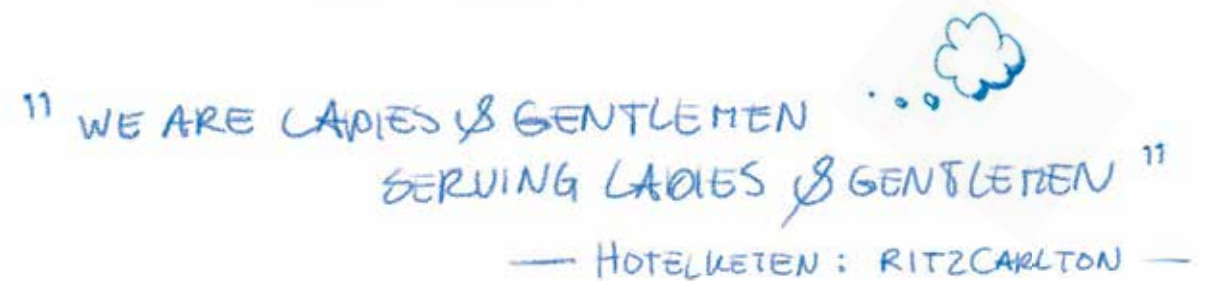 " WE ARE LADIES & GENTLEMEN
SERVING LADIES & GENTLEMEN "
— HOTELKETEN : RITZCARLTON —